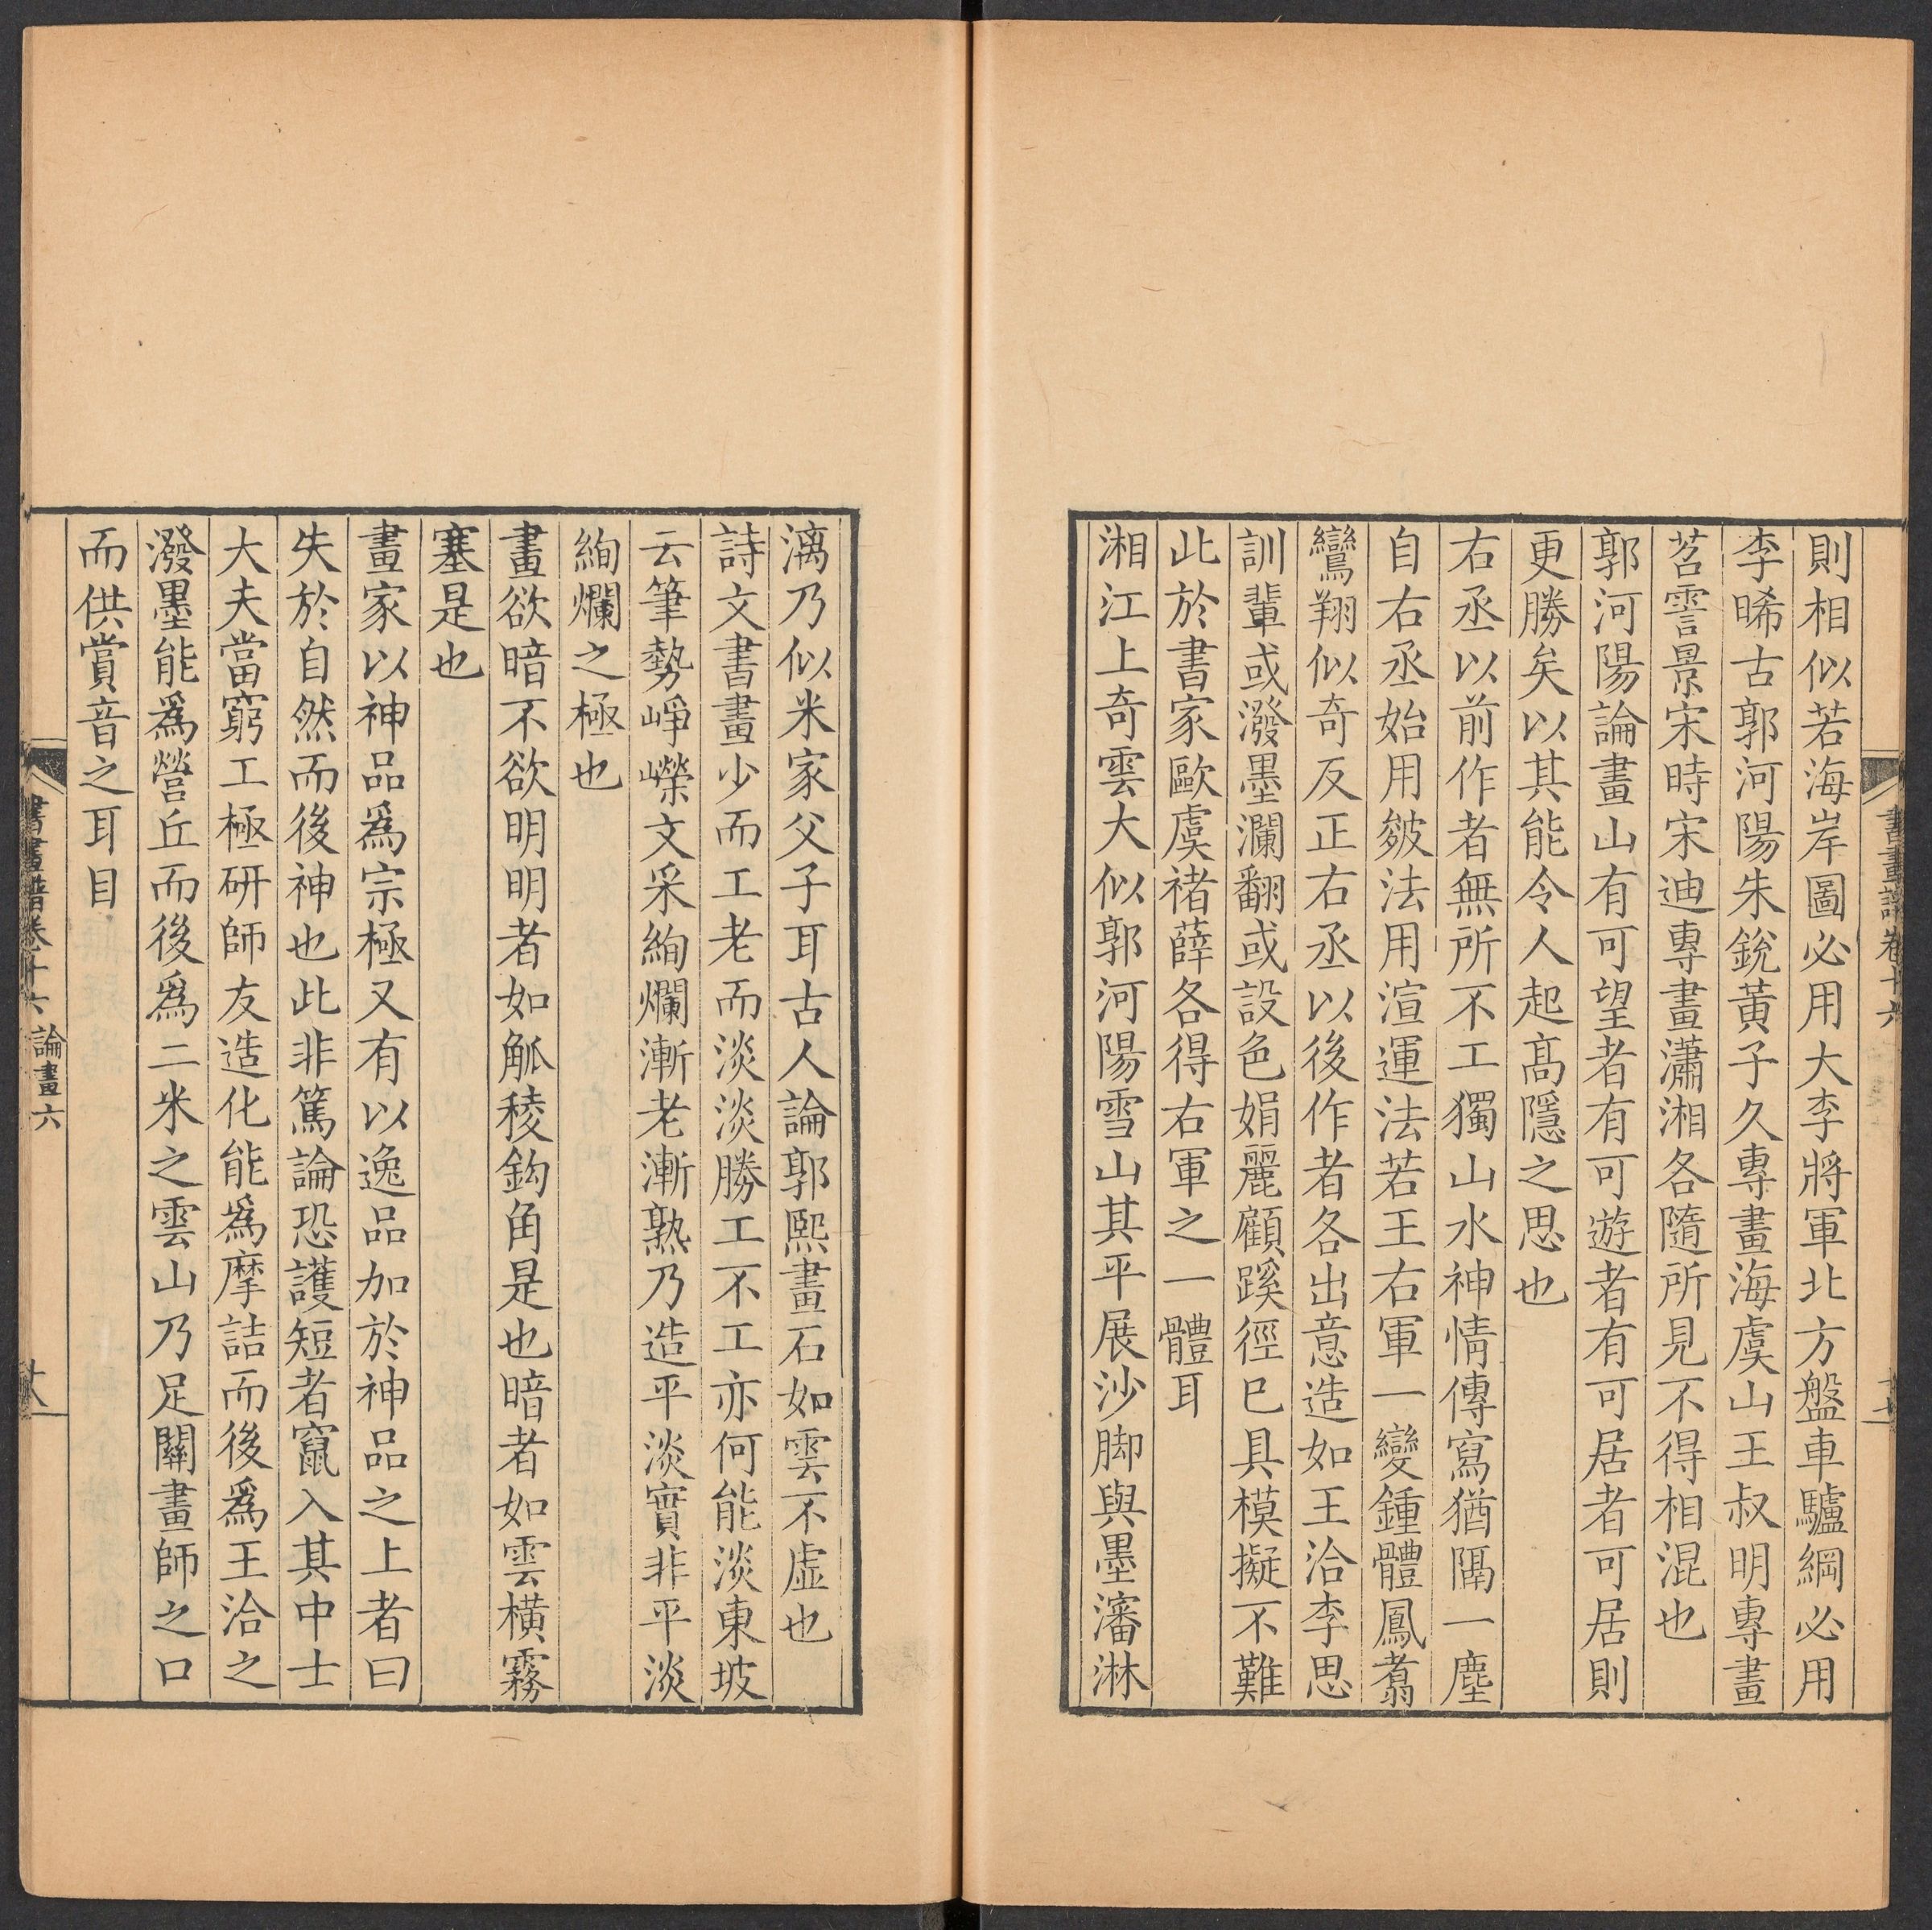 則相似若海岸圖必用大李將軍北方盤車驢綱必用
李晞古郭河陽朱銳黃子久專畫海虞山王叔明專畫
苕霅景宋時宋迪專畫瀟湘各隨所見不得相混也
郭河陽論畫山有可望者有可遊者有可居者可居則
更勝矣以其能令人起高隱之思也
右丞以前作者無所不工獨山水神情傳寫猶隔一塵
自右丞始用皴法用渲運法若王右軍一變鍾體鳳翥
鸞翔似奇反正右丞以後作者各出意造如王洽李思
訓輩或潑墨瀾翻或設色娟麗顧蹊徑已具模擬不難
此於書家歐虞褚薛各得右軍之一體耳
湘江上奇雲大似郭河陽雪山其平展沙脚與墨瀋淋
書畫譜卷十六
十七
漓乃似米家父子耳古人論郭熙畫石如雲不虛也
詩文書畫少而工老而淡淡勝工不工亦何能淡東坡
云筆勢崢嶸文采絢爛漸老漸熟乃造平淡實非平淡
絢爛之極也
畫欲暗不欲明明者如觚稜鈎角是也暗者如雲橫霧
塞是也
畫家以神品爲宗極又有以逸品加於神品之上者曰
失於自然而後神也此非篤論恐護短者竄入其中士
大夫當窮工極研師友造化能爲摩詰而後爲王洽之
潑墨能爲營丘而後爲二米之雲山乃足關畫師之口
而供賞音之耳目
書畫譜卷十六 論畫六
十八